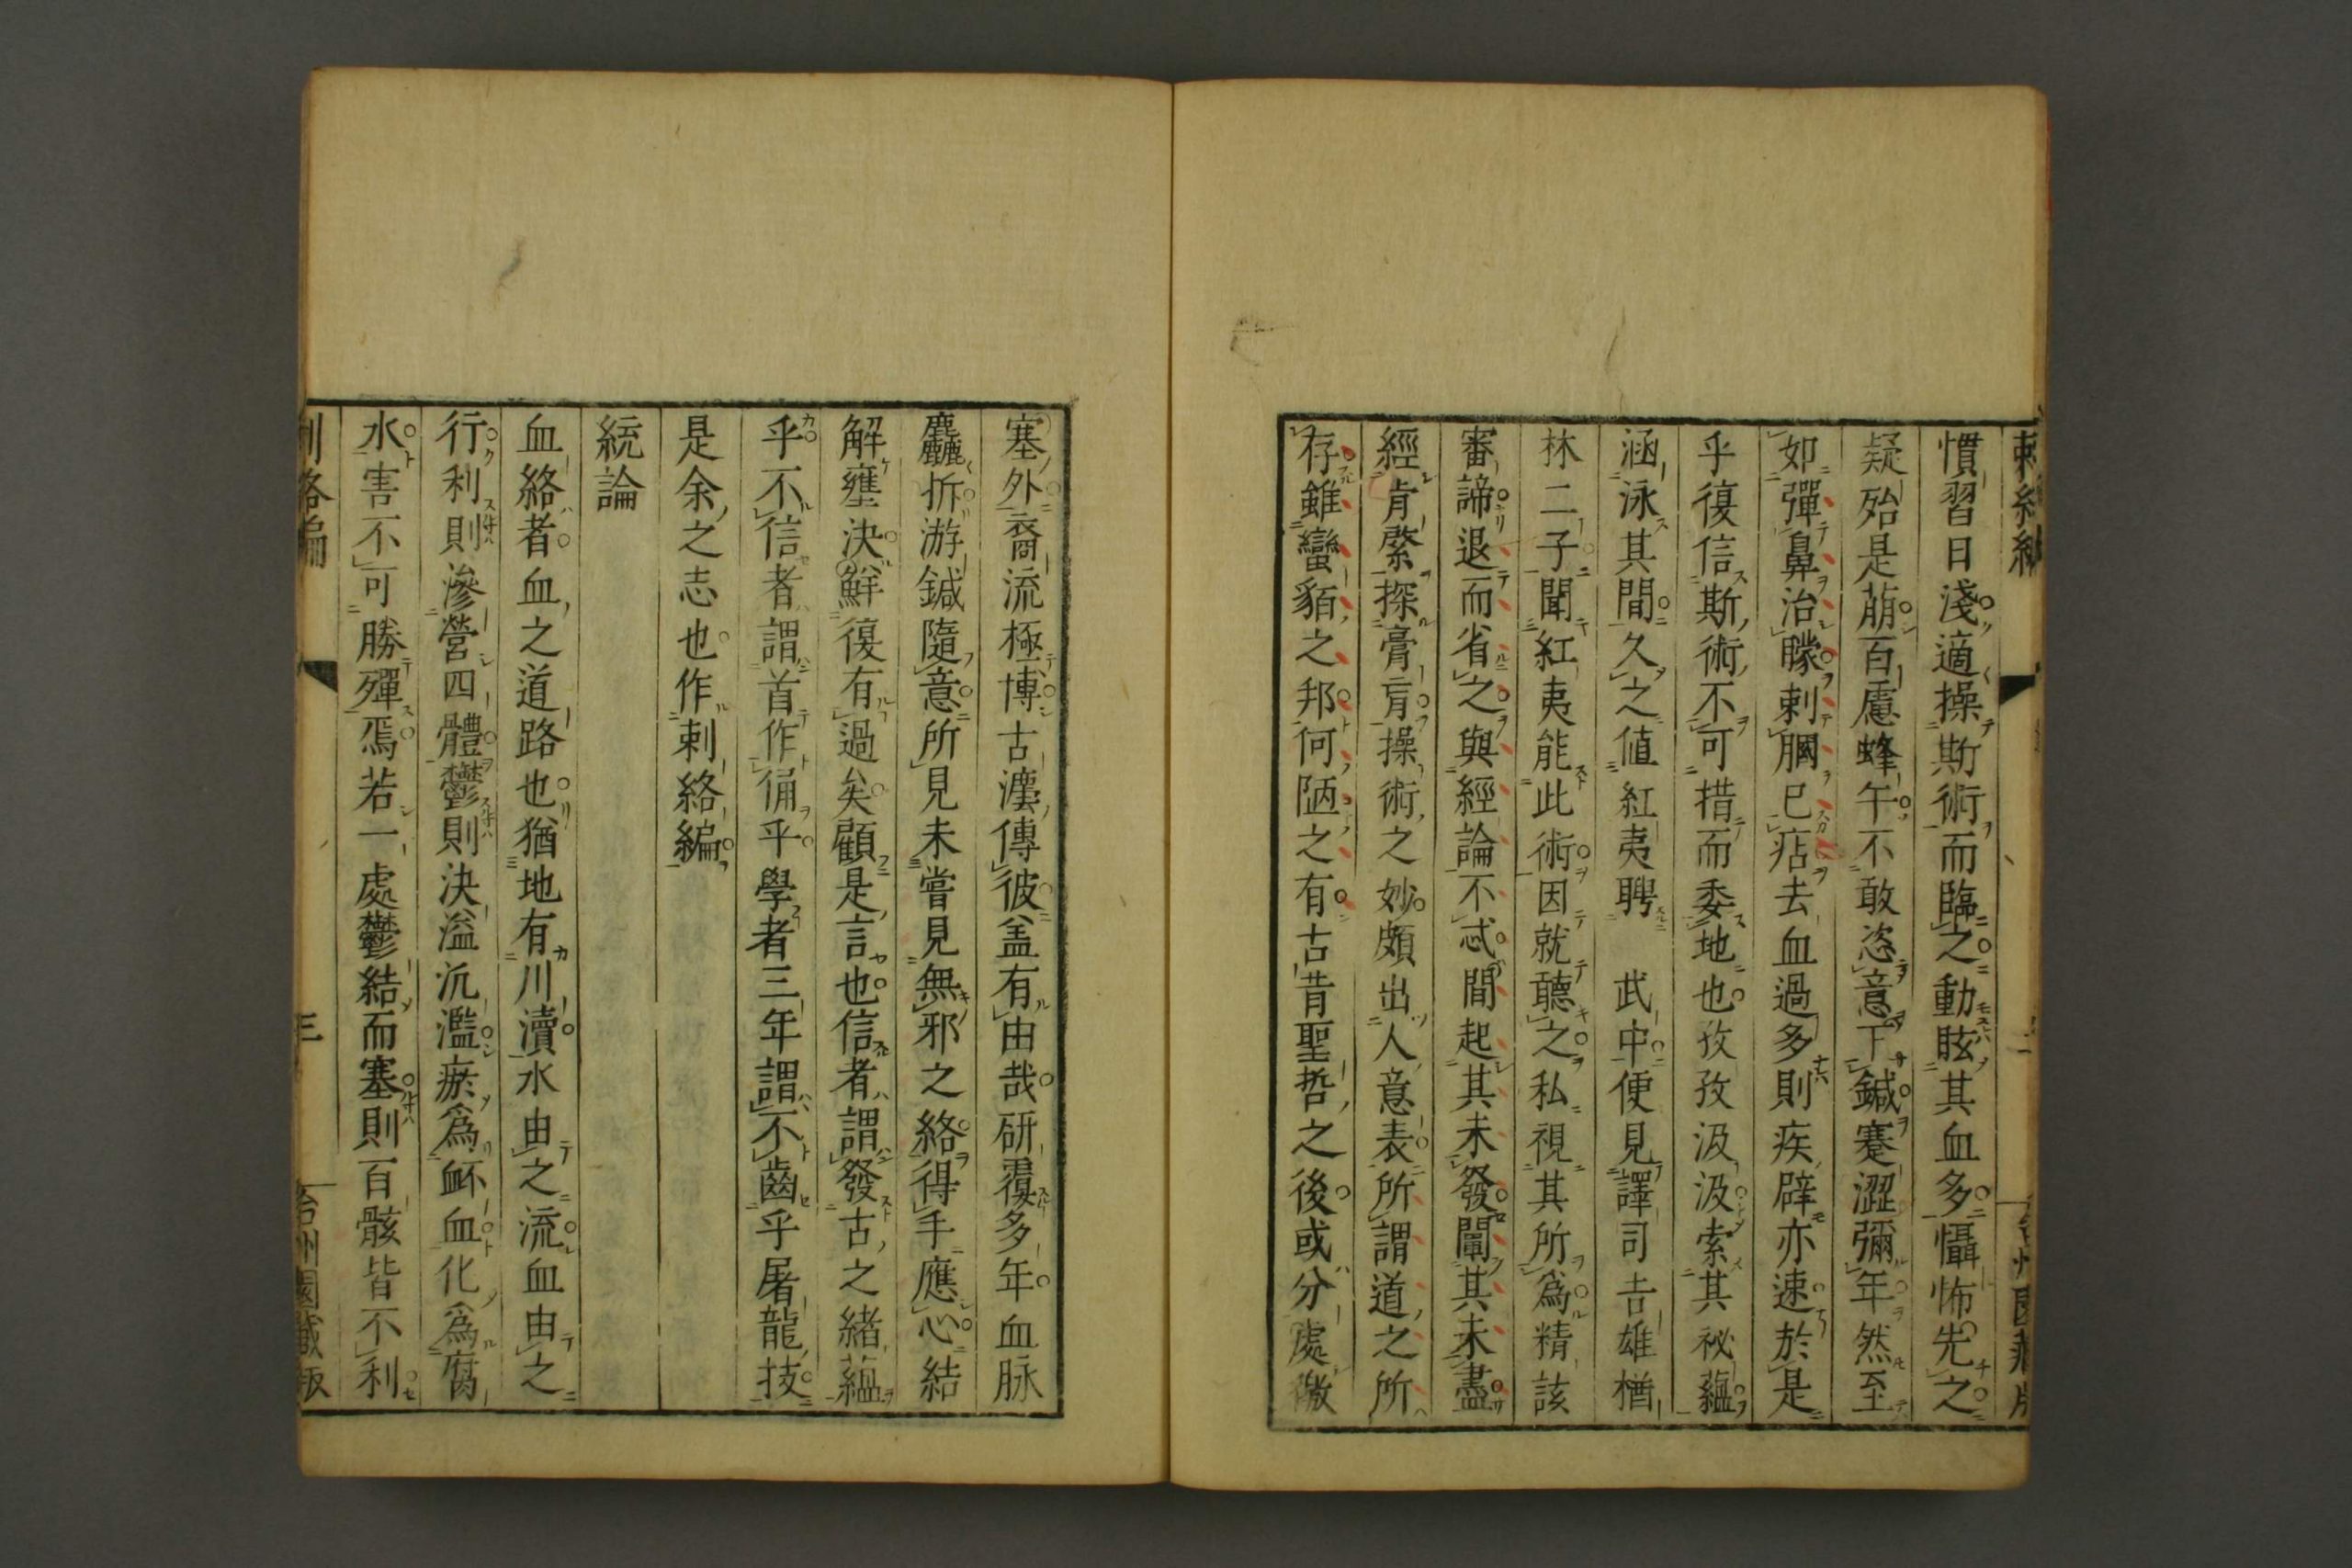 慣習日淺適操斯術而臨之動眩其血多懾怖先之
疑殆是萠百慮蜂午不敢恣意下鍼蹇澀彌年然至
如彈鼻治矇刺膕已痁去血過多則疾辟亦速於是
乎復信斯術不可措而委地也孜孜汲汲索其祕蘊
涵泳其間久之値紅夷聘 武中便見譯司吉雄楢
林二子聞紅夷能此術因就聽之私視其所爲精該
審諦退而省之與經論不忒間起其未發闡其未盡
經肯綮探膏肓操術之妙頗出人意表所謂道之所
存雖蠻貊之邦何陋之有古昔聖哲之後或分處徼
塞外裔流極博古瀍傳彼盖有由哉研覈多年血脉
麤拆游鍼隨意所見未嘗見無邪之絡得手應心結
解壅決鮮復有過矣顧是言也信者謂發古之緒蘊
乎不信者謂首作俑乎學者三年謂不齒乎屠龍技
是余之志也作刺絡編
統論
血絡者血之道路也猶地有川瀆水由之流血由之
行利則滲營四體鬱則決溢沉濫瘀爲衃血化爲腐
水害不可勝殫焉若一處鬱結而塞則百骸皆不利
三